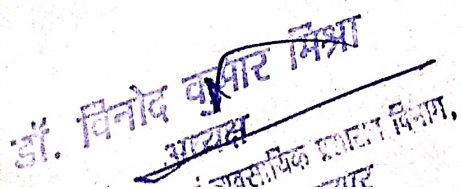 डॉ. विनोद कुमार मिश्रा
अध्यक्ष
व्यावसायिक प्रशासन विभाग,